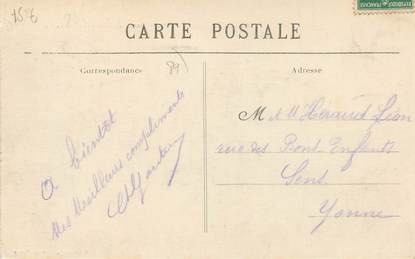 CARTE POSTALE
Correspondance
89
Adresse
A bientôt
Mes Meilleurs compliments
M et M Héraud Léon
rue des Bons Enfants
Sens
Yonne